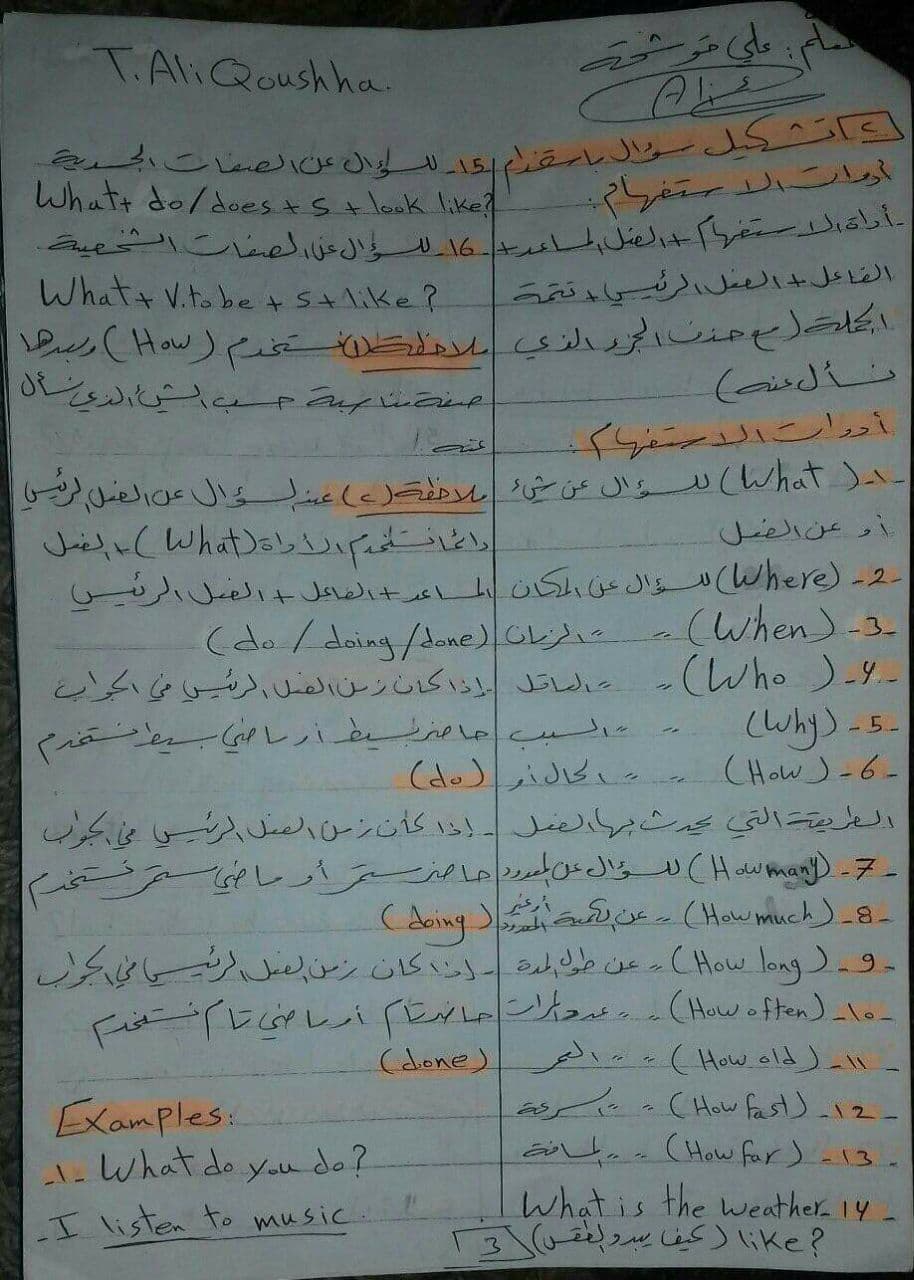 معلم: علي قوشحة
علي
T. Ali Qoushha.
٢ تشكيل سؤال باستخدام
أدوات الاستفهام:
أداة الاستفهام + الفعل المساعد +
الفاعل + الفعل الرئيسي + تتمة
الجملة (مع حذف الجزء الذي
نسأل عنه)
أدوات الاستفهام:
1- (What) للسؤال عن شيء
أو عن الفعل
2- (Where) للسؤال عن المكان
3- (When) " " الزمان
4- (Who) " " العاقل
5- (Why) " " السبب
6- (How) " " الحال أو
الطريقة التي يحدث بها الفعل
7- (How many) للسؤال عن المعدود
8- (How much) " عن الكمية أو غير المعدود
9- (How long) " عن طول المدة
10- (How often) " " عدد المرات
11- (How old) " " العمر
12- (How fast) " " السرعة
13- (How far) " " المسافة
14- What is the weather
like? (كيف يبدو الطقس)
15- للسؤال عن الصفات الجسدية
What + do/does + S + look like?
16- للسؤال عن الصفات الشخصية
What + V. to be + S + like?
ملاحظة (1) نستخدم (How) وبعدها
صفة مناسبة حسب الشيء الذي نسأل
عنه.
ملاحظة (٢) عند السؤال عن الفعل الرئيسي
دائما نستخدم الأداة (What) + الفعل
المساعد + الفاعل + الفعل الرئيسي
(do / doing / done)
- إذا كان زمن الفعل الرئيسي في الجواب
حاضر بسيط أو ماضي بسيط نستخدم
(do)
- إذا كان زمن الفعل الرئيسي في الجواب
حاضر مستمر أو ماضي مستمر نستخدم
(doing)
- إذا كان زمن الفعل الرئيسي في الجواب
حاضر تام أو ماضي تام نستخدم
(done)
Examples:
-1- What do you do?
- I listen to music.
3